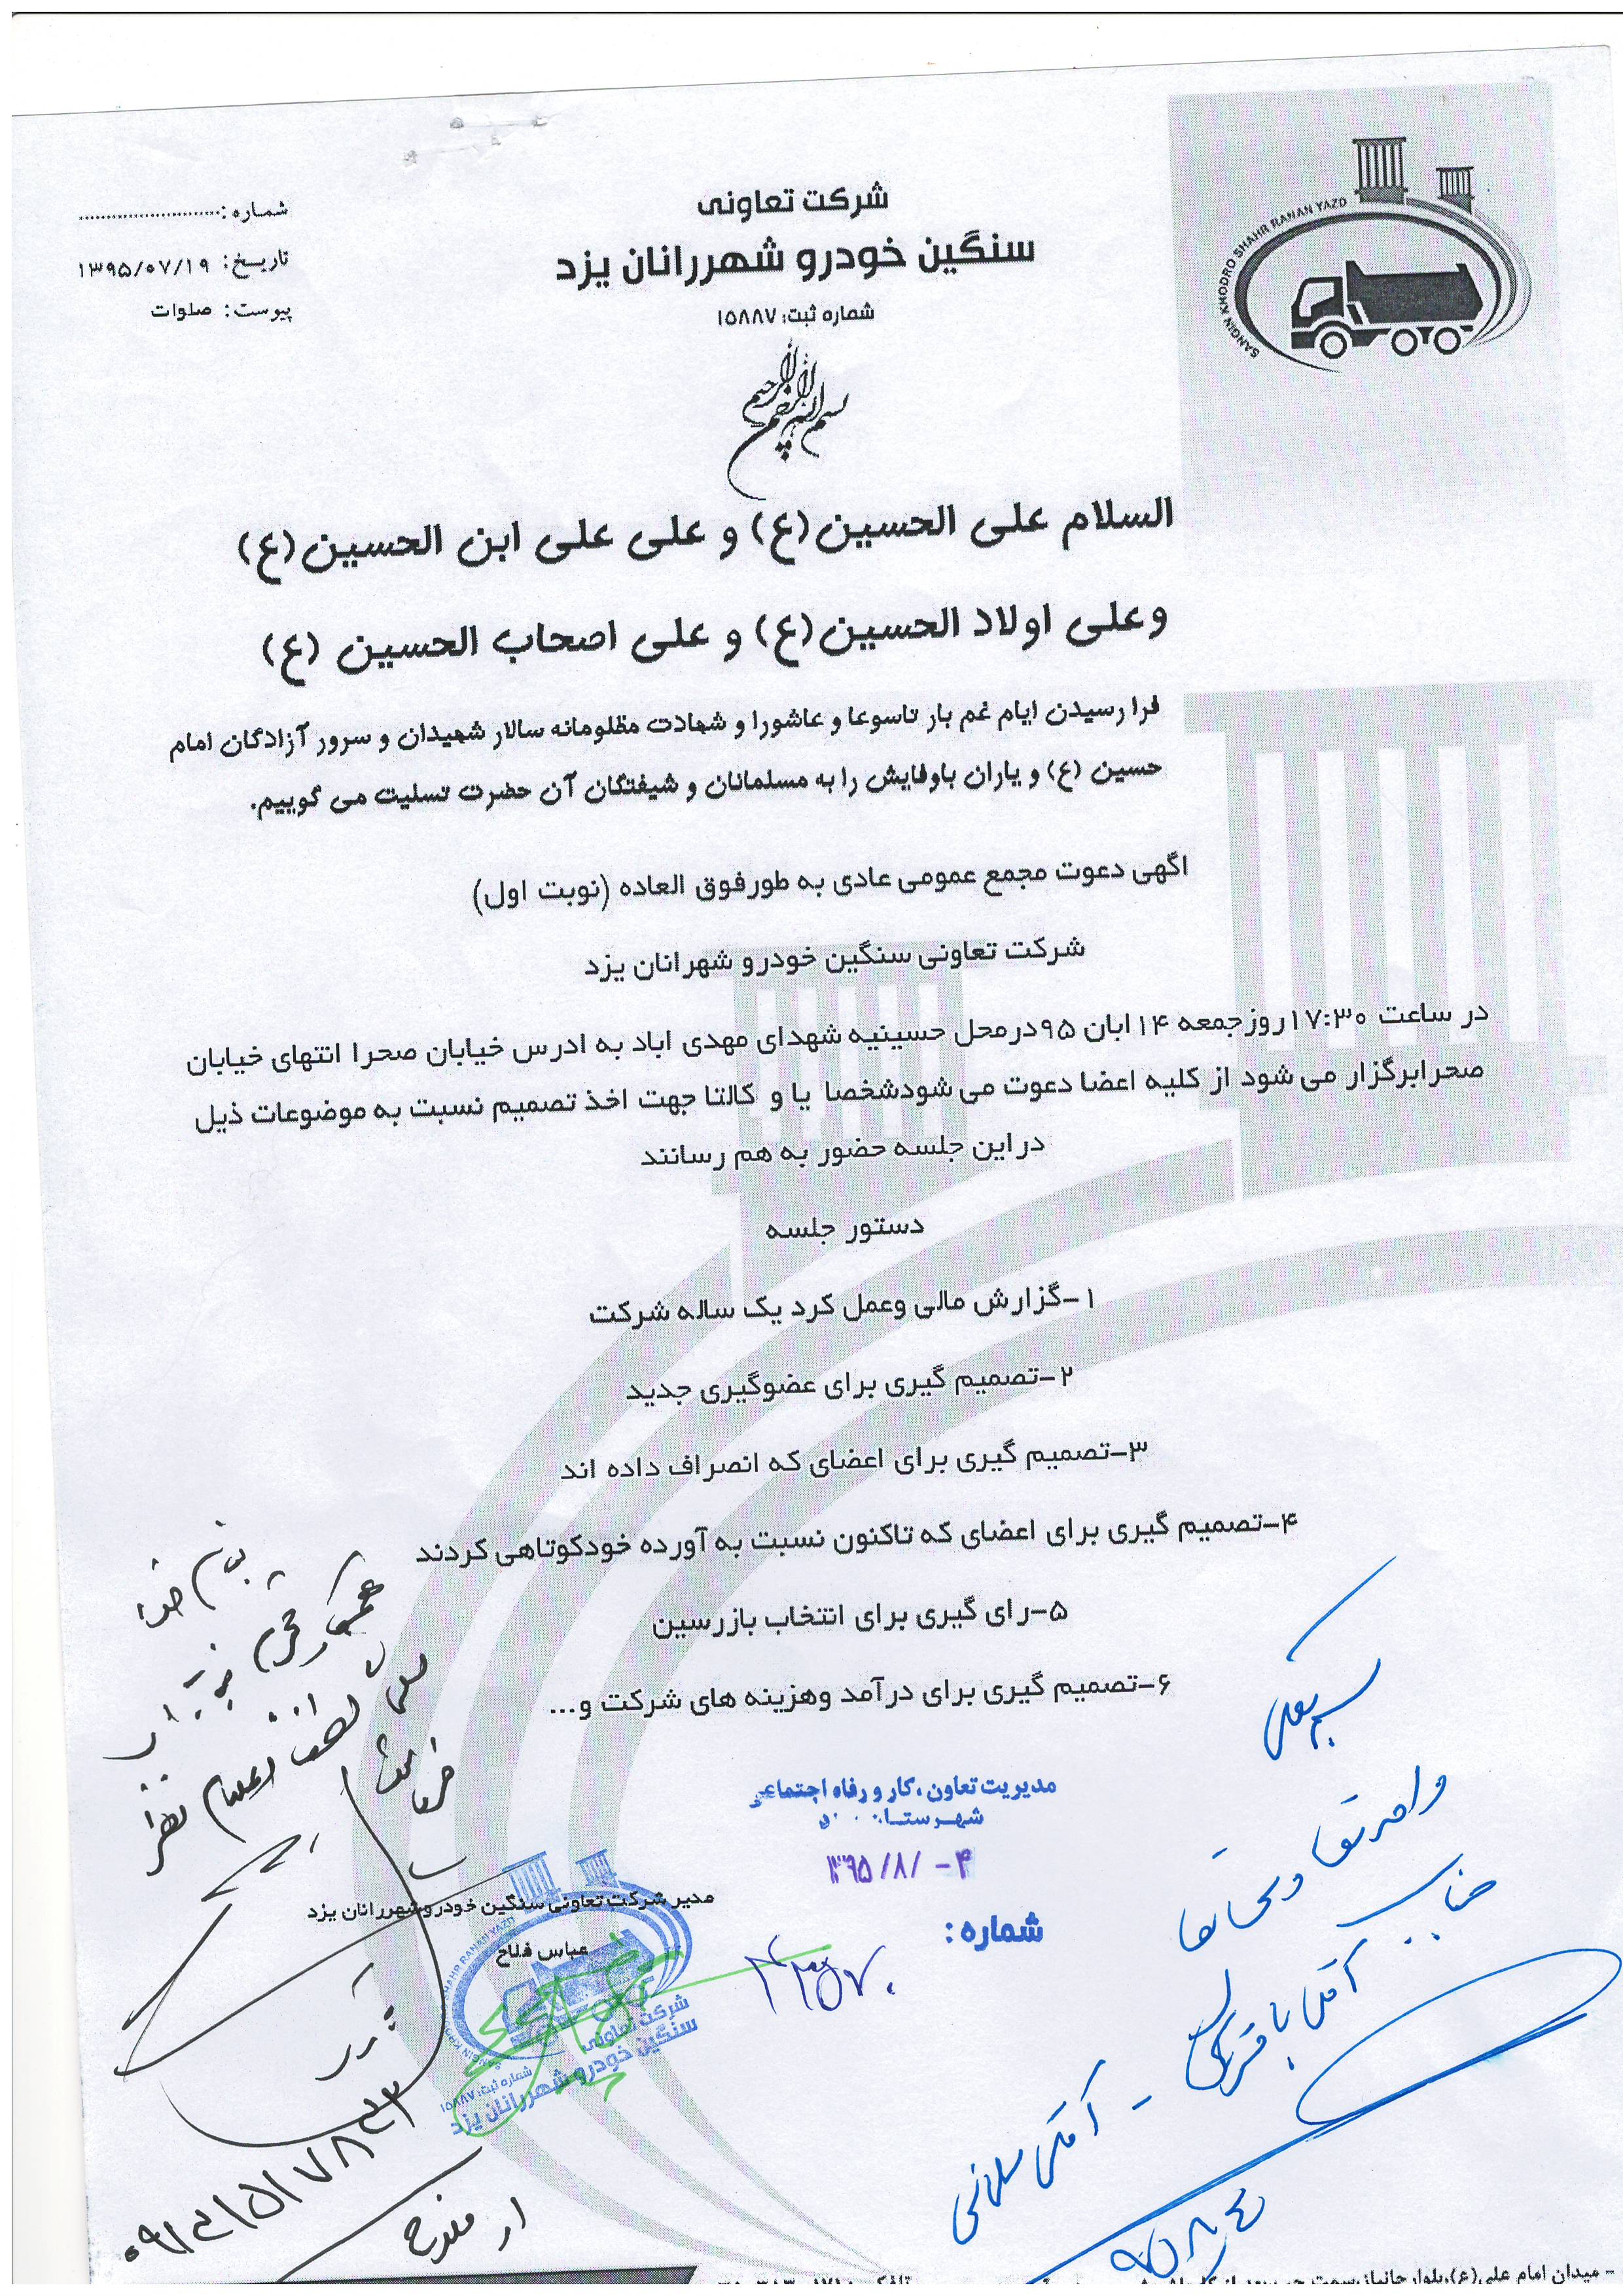 شرکت تعاونی
سنگین خودرو شهررانان یزد
شماره ثبت: ۱۵۸۸۷
شماره :............................
تاریخ: ۱۳۹۵/۰۷/۱۹
پیوست: صلوات
SANGIN KHODRO SHAHR RANAN YAZD
بسم الله الرحمن الرحیم
السلام علی الحسین(ع) و علی علی ابن الحسین(ع)
وعلی اولاد الحسین(ع) و علی اصحاب الحسین (ع)
فرا رسیدن ایام غم بار تاسوعا و عاشورا و شهادت مظلومانه سالار شهیدان و سرور آزادگان امام
حسین (ع) و یاران باوفایش را به مسلمانان و شیفتگان آن حضرت تسلیت می گوییم.
اگهی دعوت مجمع عمومی عادی به طورفوق العاده (نوبت اول)
شرکت تعاونی سنگین خودرو شهرانان یزد
در ساعت ۱۷:۳۰روزجمعه ۱۴ ابان ۹۵درمحل حسینیه شهدای مهدی اباد به ادرس خیابان صحرا انتهای خیابان
صحرابرگزار می شود از کلیه اعضا دعوت می شودشخصا یا و کالتا جهت اخذ تصمیم نسبت به موضوعات ذیل
دراین جلسه حضور به هم رسانند
دستور جلسه
۱-گزارش مالی وعمل کرد یک ساله شرکت
۲-تصمیم گیری برای عضوگیری جدید
۳-تصمیم گیری برای اعضای که انصراف داده اند
۴-تصمیم گیری برای اعضای که تاکنون نسبت به آورده خودکوتاهی کردند
۵-رای گیری برای انتخاب بازرسین
۶-تصمیم گیری برای درآمد وهزینه های شرکت و...
مدیریت تعاون ،کار و رفاه اجتماعی
۱۳۹۵/۸/-۴
شماره:
مدیر شرکت تعاونی سنگین خودرو شهررانان یزد
عباس فلاح
شرکت تعاونی
سنگین خودرو شهررانان یزد
شماره ثبت: ۱۵۸۸۷
بنام خدا
لطفا اعلام نظر
فرمائید
۰۹۱۳۱۵۱۷۸۲۳